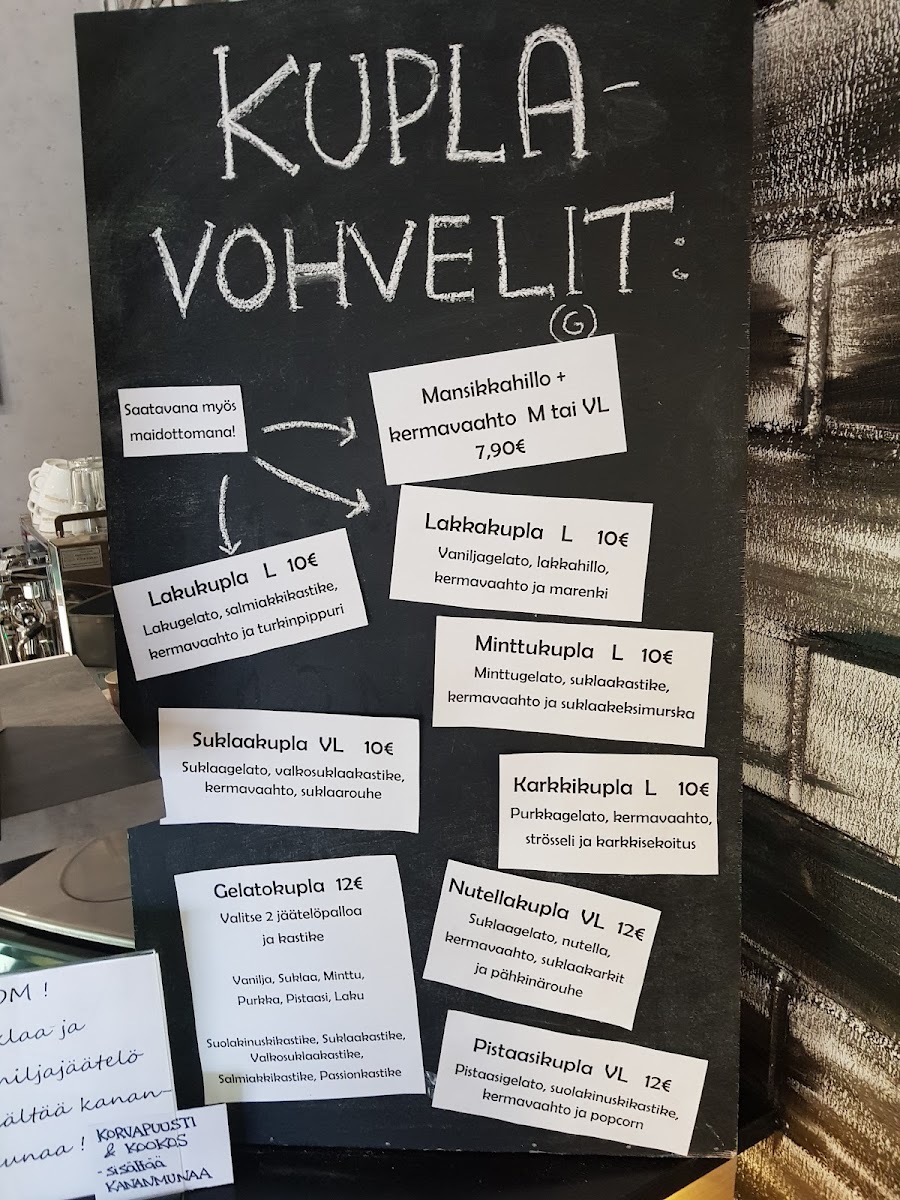 KUPLA-
VOHVELIT:
G
Saatavana myös
maidottomana!
Mansikkahillo +
kermavaahto M tai VL
7,90€
Lakkakupla L 10€
Vaniljagelato, lakkahillo,
kermavaahto ja marenki
Lakukupla L 10€
Lakugelato, salmiakkikastike,
kermavaahto ja turkinpippuri
Minttukupla L 10€
Minttugelato, suklaakastike,
kermavaahto ja suklaakeksimurska
Suklaakupla VL 10€
Suklaagelato, valkosuklaakastike,
kermavaahto, suklaarouhe
Karkkikupla L 10€
Purkkagelato, kermavaahto,
strösseli ja karkkisekoitus
Gelatokupla 12€
Valitse 2 jäätelöpalloa
ja kastike
Vanilja, Suklaa, Minttu,
Purkka, Pistaasi, Laku
Suolakinuskikastike, Suklaakastike,
Valkosuklaakastike,
Salmiakkikastike, Passionkastike
Nutellakupla VL 12€
Suklaagelato, nutella,
kermavaahto, suklaakarkit
ja pähkinärouhe
Pistaasikupla VL 12€
Pistaasigelato, suolakinuskikastike,
kermavaahto ja popcorn
OM !
klaa ja
niljajäätelö
sältää kanan-
unaa !
KORVAPUUSTI
& KOOKOS
- SISÄLTÄÄ
KANANMUNAA